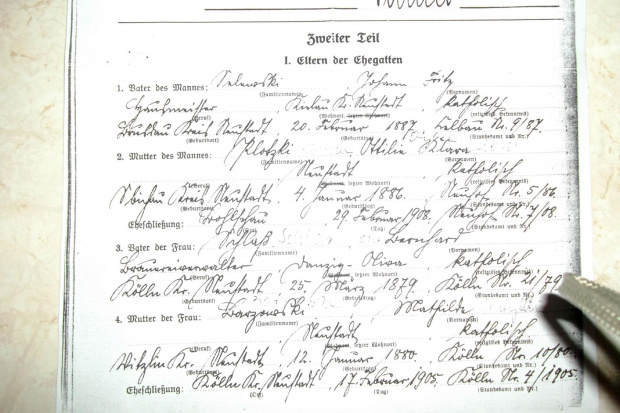 Zweiter Teil
I. Eltern der Ehegatten
1. Vater des Mannes: Selewski, Johann Fritz
(Familienname) (Vornamen)
Kr. Neustadt, katholisch
(Beruf) (Wohnort, letzter Wohnort) (religiöses Bekenntnis)
Kreis Neustadt, 20. Februar 1887, Nr. 9/87.
(Geburtsort) (Geburtstag) (Standesamt und Nr.)
2. Mutter des Mannes: Klotzki Ottilie Klara
(Familienname) (Vornamen)
Neustadt, katholisch
(Beruf) (Wohnort, letzter Wohnort) (religiöses Bekenntnis)
Kreis Neustadt, 4. Januar 1886. Neuhof Nr. 5/86.
(Geburtsort) (Geburtstag) (Standesamt und Nr.)
Eheschließung: Bohlschau, 29. Februar 1908, Neuhof Nr. 7/08.
(Ort) (Tag) (Standesamt und Nr.)
3. Vater der Frau: Bernhard
(Familienname) (Vornamen)
Brauereiverwalter, Danzig-Oliva, katholisch
(Beruf) (Wohnort, letzter Wohnort) (religiöses Bekenntnis)
Kölln Kr. Neustadt, 25. März 1879. Kölln Nr. 21/79
(Geburtsort) (Geburtstag) (Standesamt und Nr.)
4. Mutter der Frau: Barzowski, Mathilde
(Familienname) (Vornamen)
Neustadt, katholisch
(Beruf) (Wohnort, letzter Wohnort) (religiöses Bekenntnis)
Kr. Neustadt, 12. Januar 1880. Kölln Nr. 10/80.
(Geburtsort) (Geburtstag) (Standesamt und Nr.)
Eheschließung: Kölln Kr. Neustadt, 17. Februar 1905. Kölln Nr. 4/1905.
(Ort) (Tag) (Standesamt und Nr.)